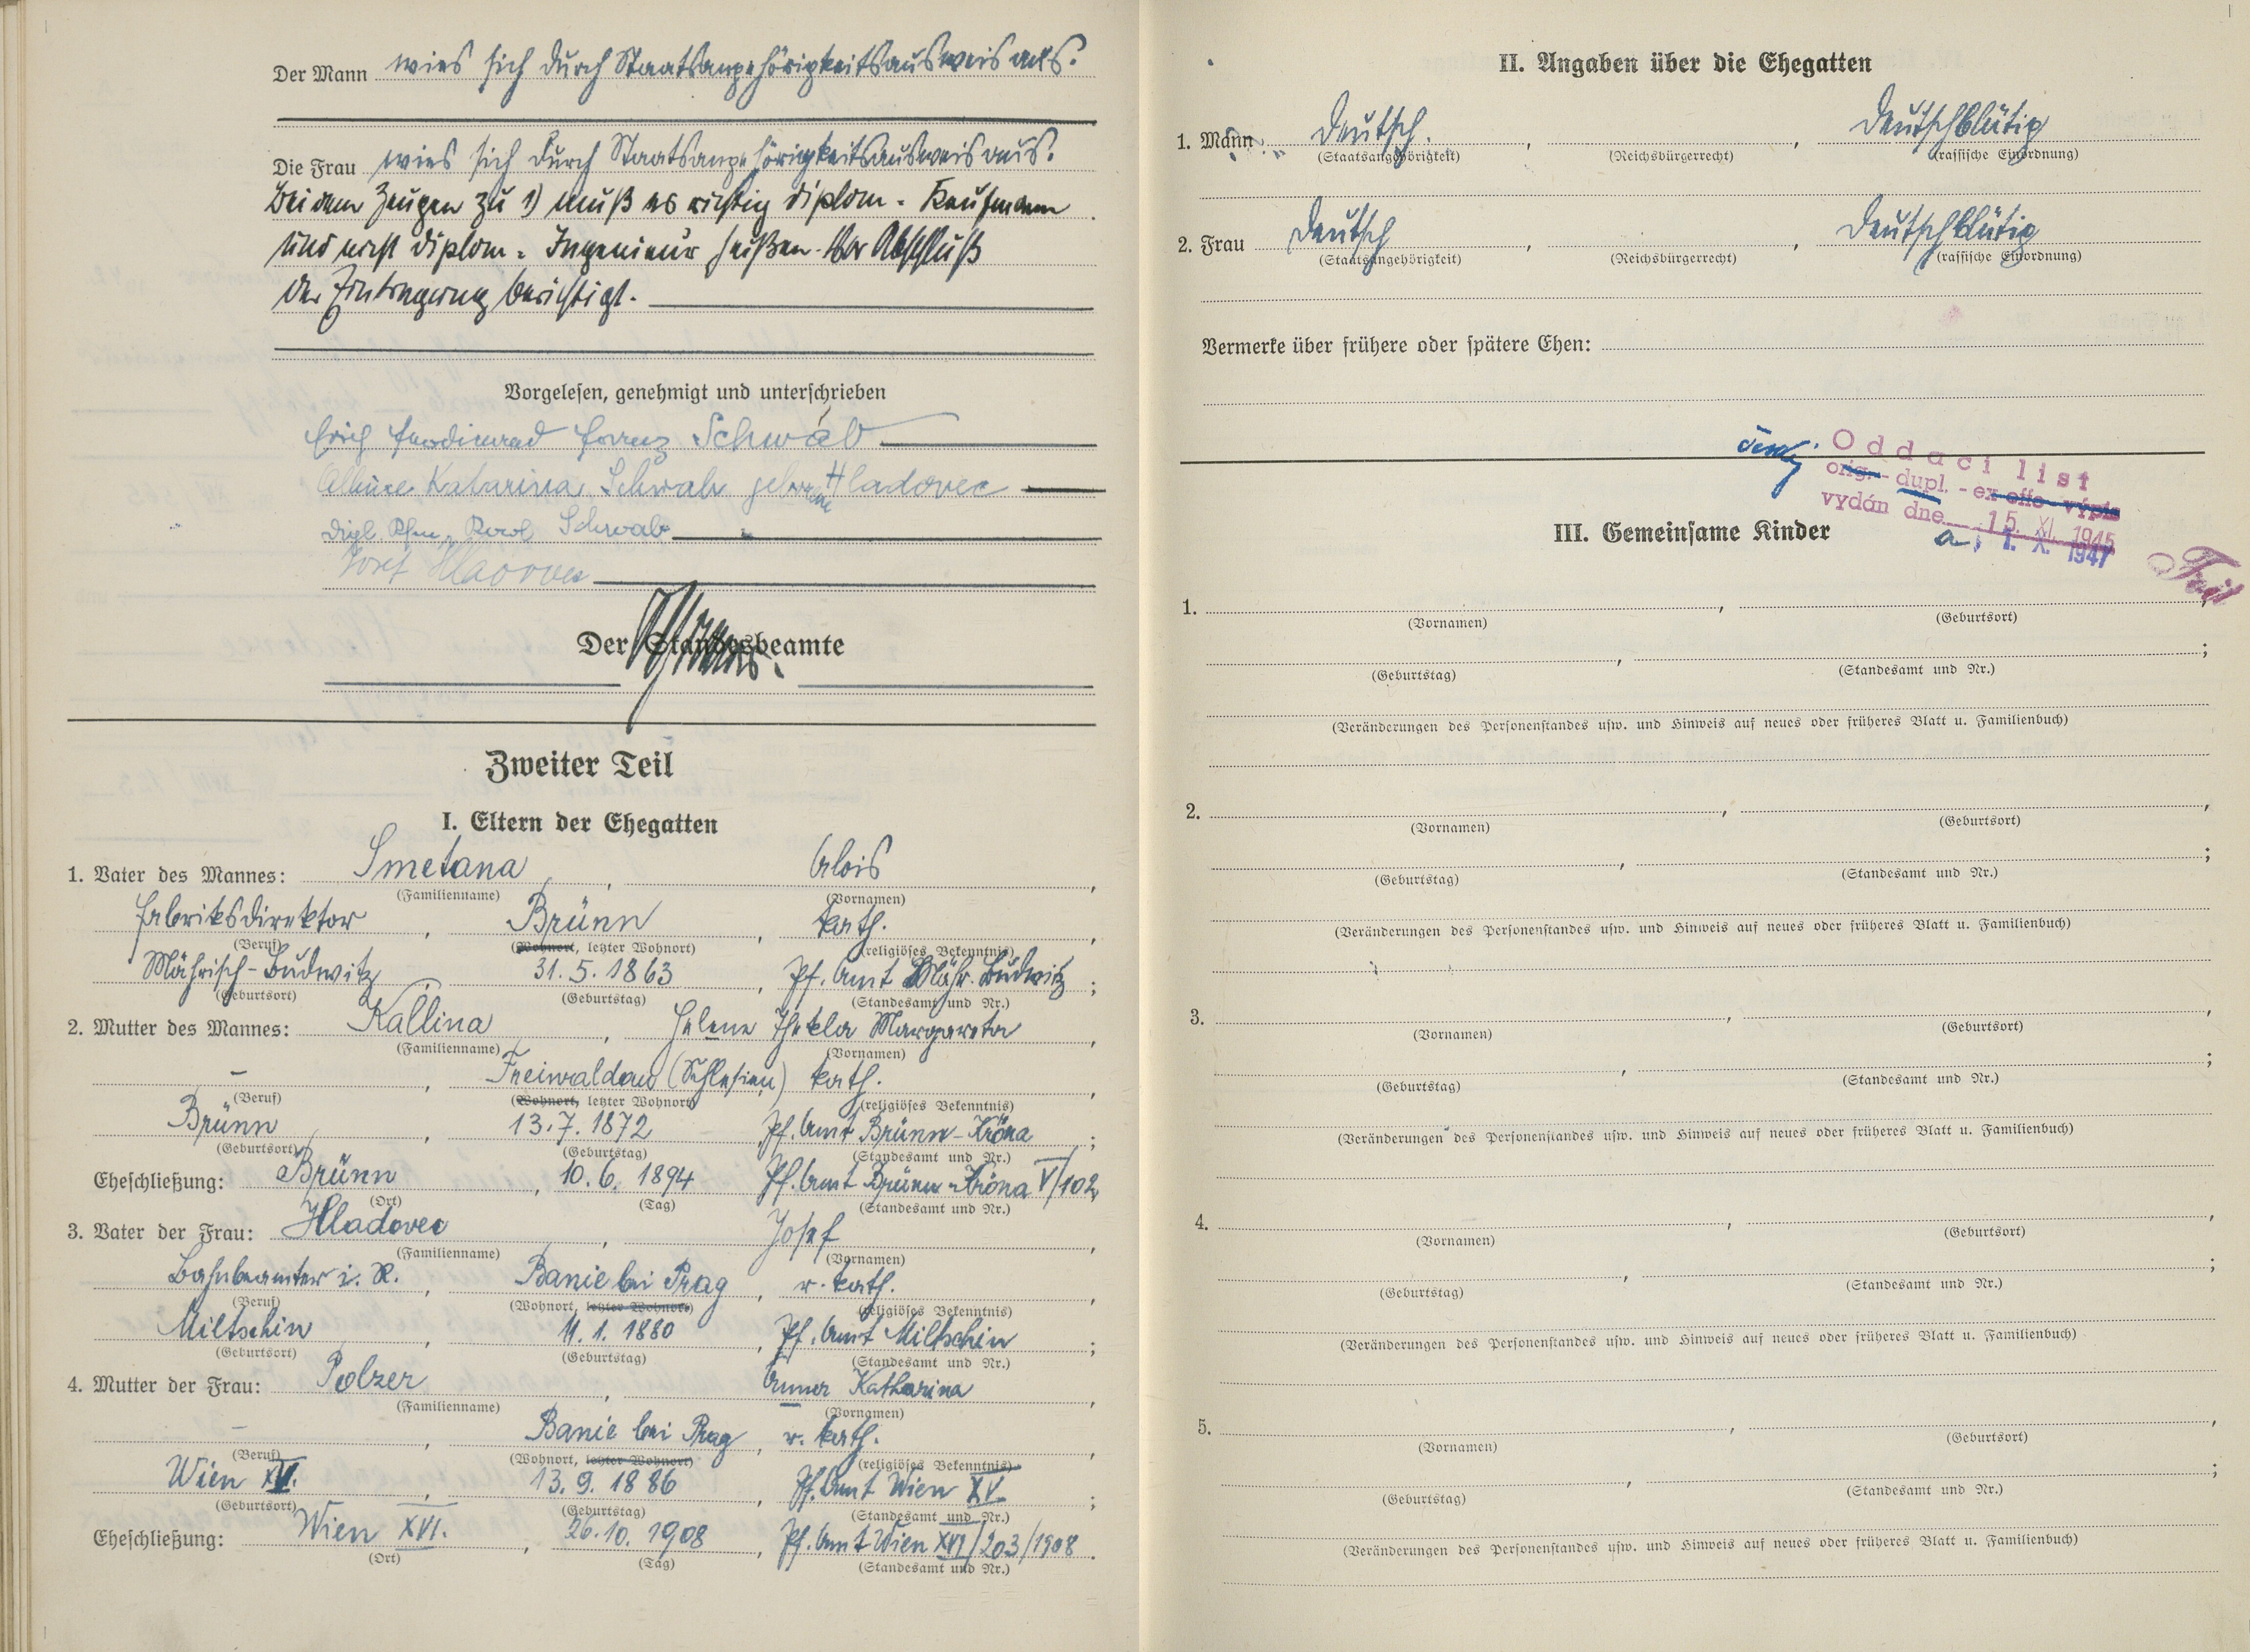 Der Mann wies sich durch Staatsangehörigkeitsausweis aus.
Die Frau wies sich durch Staatsangehörigkeitsausweis aus.
Bei dem Zeugen zu 1) muß es richtig diplom.-Kaufmann
und nicht diplom.-Ingenieur heißen. Vor Abschluß
der Eintragung berichtigt.
Vorgelesen, genehmigt und unterschrieben
Erich Ferdinand Schwab
Katarina Schwab geborene Hladovec
Schwab
Josef Hladovec
Der Standesbeamte
Zweiter Teil
I. Eltern der Ehegatten
1. Vater des Mannes: Smetana, Alois,
(Familienname) (Vornamen)
Fabriksdirektor, Brünn, kath.,
(Beruf) (Wohnort, letzter Wohnort) (religiöses Bekenntnis)
Mährisch-Budwitz, 31.5.1863, Pf. Amt Mähr. Budwitz;
(Geburtsort) (Geburtstag) (Standesamt und Nr.)
2. Mutter des Mannes: Kallina, Helene Thekla Margareta,
(Familienname) (Vornamen)
–, Freiwaldau (Schlesien) kath.,
(Beruf) (Wohnort, letzter Wohnort) (religiöses Bekenntnis)
Brünn, 13.7.1872 Pf. Amt Brünn-Kröna;
(Geburtsort) (Geburtstag) (Standesamt und Nr.)
Eheschließung: Brünn, 10.6.1894 Pf. Amt Brünn-Kröna V/102
(Ort) (Tag) (Standesamt und Nr.)
3. Vater der Frau: Hladovec, Josef,
(Familienname) (Vornamen)
Bahnbeamter i. R., Banie bei Prag, r. kath.,
(Beruf) (Wohnort, letzter Wohnort) (religiöses Bekenntnis)
Miltschin, 11.1.1880, Pf. Amt Miltschin;
(Geburtsort) (Geburtstag) (Standesamt und Nr.)
4. Mutter der Frau: Polzer, Anna Katharina,
(Familienname) (Vornamen)
–, Banie bei Prag, r. kath.,
(Beruf) (Wohnort, letzter Wohnort) (religiöses Bekenntnis)
Wien XV., 13.9.1886, Pf. Amt Wien XV;
(Geburtsort) (Geburtstag) (Standesamt und Nr.)
Eheschließung: Wien XVI., 26.10.1908, Pf. Amt Wien XVI/203/1908.
(Ort) (Tag) (Standesamt und Nr.)
II. Angaben über die Ehegatten
1. Mann Deutsch, , Deutschblütig
(Staatsangehörigkeit) (Reichsbürgerrecht) (rassische Einordnung)
2. Frau Deutsch, , Deutschblütig
(Staatsangehörigkeit) (Reichsbürgerrecht) (rassische Einordnung)
Vermerke über frühere oder spätere Ehen:
český Oddací list
orig. - dupl. - ex offo - výpis
vydán dne 15. XI. 1945
a 1. X. 1947
III. Gemeinsame Kinder
1. , ,
(Vornamen) (Geburtsort)
, ;
(Geburtstag) (Standesamt und Nr.)
(Veränderungen des Personenstandes usw. und Hinweis auf neues oder früheres Blatt u. Familienbuch)
2. , ,
(Vornamen) (Geburtsort)
, ;
(Geburtstag) (Standesamt und Nr.)
(Veränderungen des Personenstandes usw. und Hinweis auf neues oder früheres Blatt u. Familienbuch)
3. , ,
(Vornamen) (Geburtsort)
, ;
(Geburtstag) (Standesamt und Nr.)
(Veränderungen des Personenstandes usw. und Hinweis auf neues oder früheres Blatt u. Familienbuch)
4. , ,
(Vornamen) (Geburtsort)
, ;
(Geburtstag) (Standesamt und Nr.)
(Veränderungen des Personenstandes usw. und Hinweis auf neues oder früheres Blatt u. Familienbuch)
5. , ,
(Vornamen) (Geburtsort)
, ;
(Geburtstag) (Standesamt und Nr.)
(Veränderungen des Personenstandes usw. und Hinweis auf neues oder früheres Blatt u. Familienbuch)